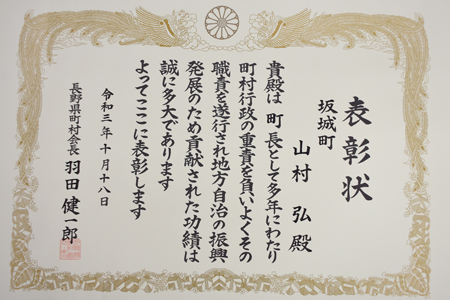 表彰状
坂城町
山村 弘 殿
貴殿は 町長として多年にわたり
町村行政の重責を負いよくその
職責を遂行され地方自治の振興
発展のため貢献された功績は
誠に多大であります
よってここに表彰します
令和三年十月十八日
長野県町村会長 羽田 健一郎